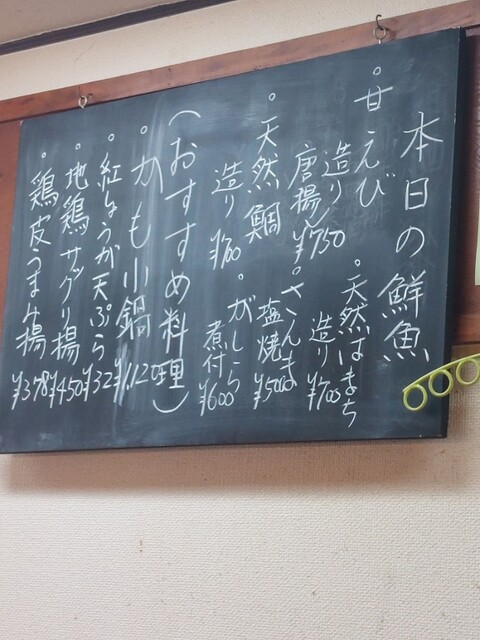 本日の鮮魚
。甘えび
造り
唐揚 ¥750
。天然はまち
造り ¥700
。天然鯛
造り ¥700
。さんま
塩焼 ¥500
。がしら
煮付 ¥600
(おすすめ料理)
。かも小鍋 ¥1,120
。紅しょうが天ぷら ¥324
。地鶏サクサク揚 ¥450
。鶏皮うまみ揚 ¥378